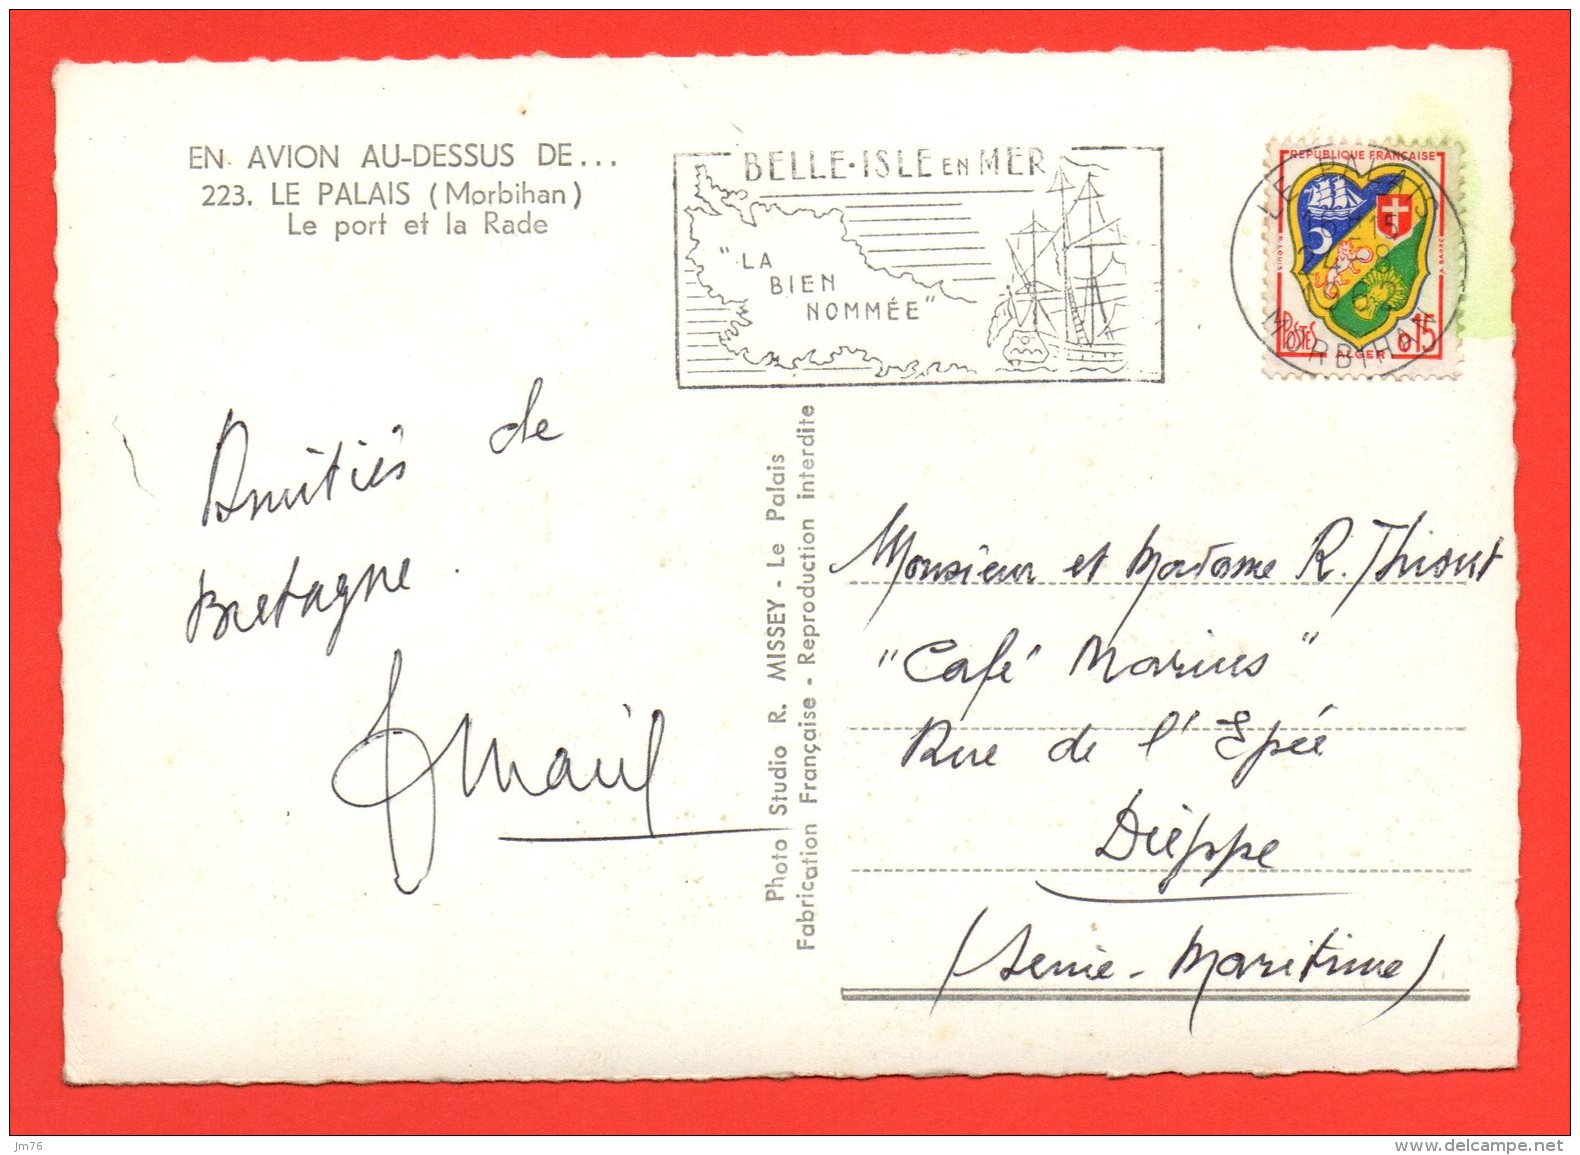 EN AVION AU-DESSUS DE...
223. LE PALAIS (Morbihan)
Le port et la Rade
BELLE-ISLE EN MER
"LA
BIEN
NOMMÉE"
LE PALAIS
MORBIHAN
REPUBLIQUE FRANÇAISE
POSTES
0,15
ALGER
Amitiés de
Bretagne.
Photo Studio R. MISSEY - Le Palais
Fabrication Française - Reproduction interdite
Monsieur et Madame R. Thiout
"Café Marius"
Rue de l'Epée
Dieppe
(Seine-Maritime)
jm76
www.delcampe.net